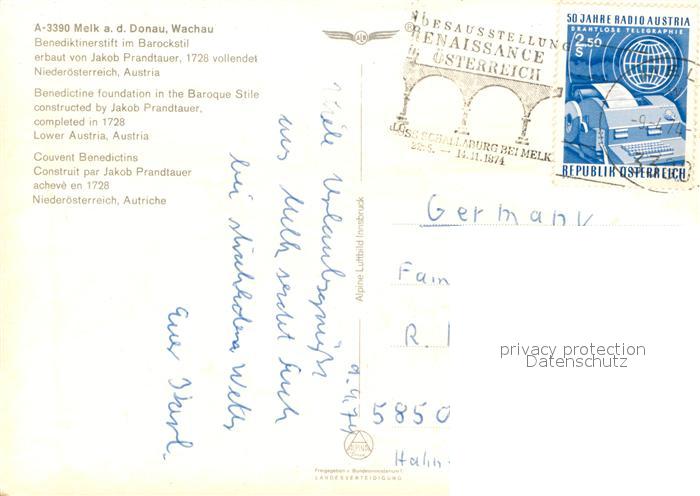 A-3390 Melk a. d. Donau, Wachau
Benediktinerstift im Barockstil
erbaut von Jakob Prandtauer, 1728 vollendet
Niederösterreich, Austria
Benedictine foundation in the Baroque Stile
constructed by Jakob Prandtauer,
completed in 1728
Lower Austria, Austria
Couvent Benedictins
Construit par Jakob Prandtauer
achevè en 1728
Niederösterreich, Autriche
Viele Urlaubsgrüße
aus Melk sendet Euch
bei strahlendem Wetter
Euer
9.4.74
Alpine Luftbild Innsbruck
NDESAUSSTELLUNG
RENAISSANCE
IN
ÖSTERREICH
LOSS SCHALLABURG BEI MELK
14.11.1974
50 JAHRE RADIO AUSTRIA
DRAHTLOSE TELEGRAPHIE
2.50
S
REPUBLIK ÖSTERREICH
Germany
Fam
R.
5850
Hohn
privacy protection
Datenschutz
ALPINE
Freigegeben v. Bundesministerium f.
LANDESVERTEIDIGUNG